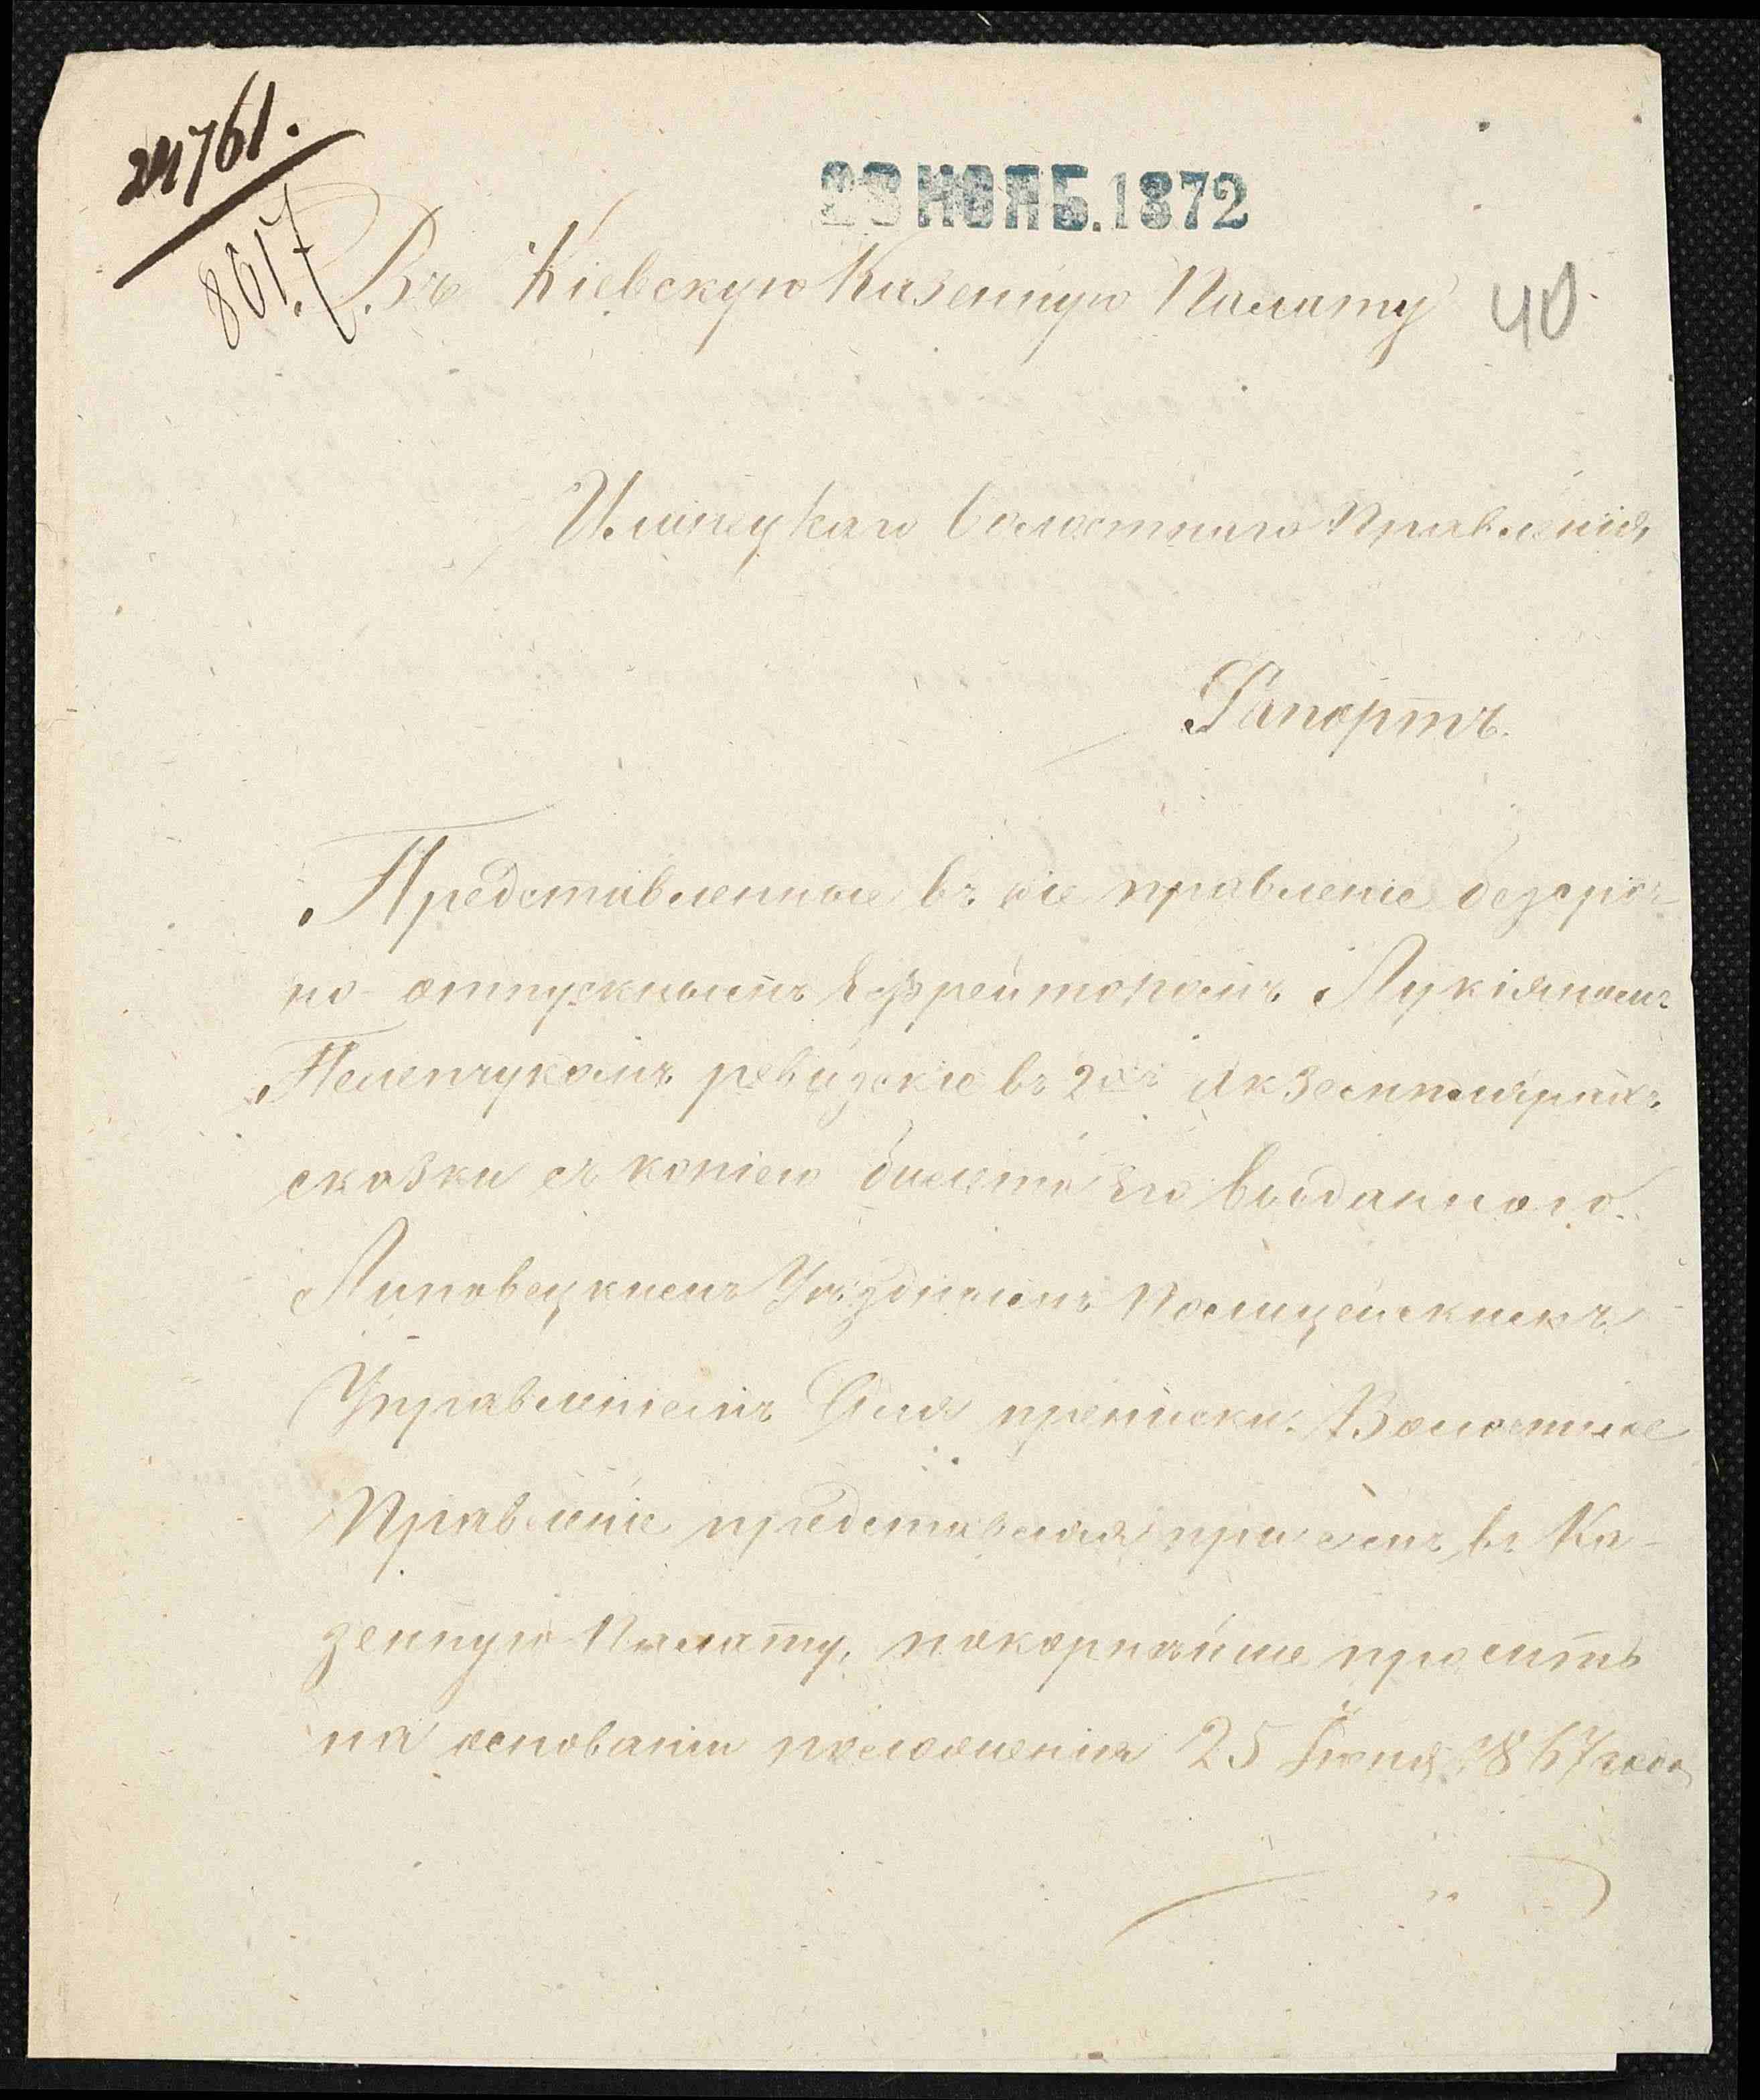 24761.
8017
28 НОЯБ. 1872
Въ Кіевскую Казенную Палату
40
Илинецкаго Волостнаго Правленія
Рапортъ.
Представленные въ сіе правленіе безсроч-
но-отпускнымъ Ефрейторомъ Лукіяномъ
ревизскіе въ 2хъ Акземплярахъ
сказки съ копіею билета его выданного
Липовецкимъ Уѣзднымъ Полицейскимъ
Управленіемъ для преписки. Волостное
Правленіе представляя при семъ въ Ка-
зенную Палату, покорнѣйше проситъ
на основаніи положенія 25 Іюня 1867 года